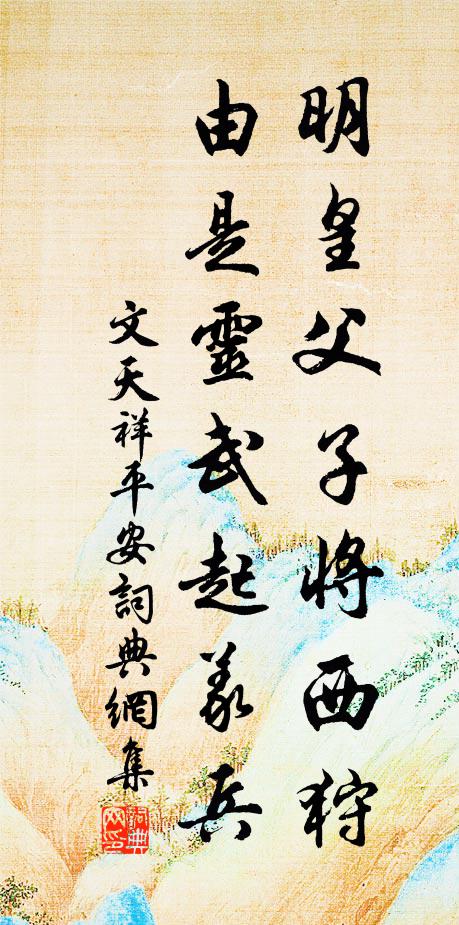 明皇父子將西狩
由是靈武起義兵
文天祥平安詞典網集
詞典網印